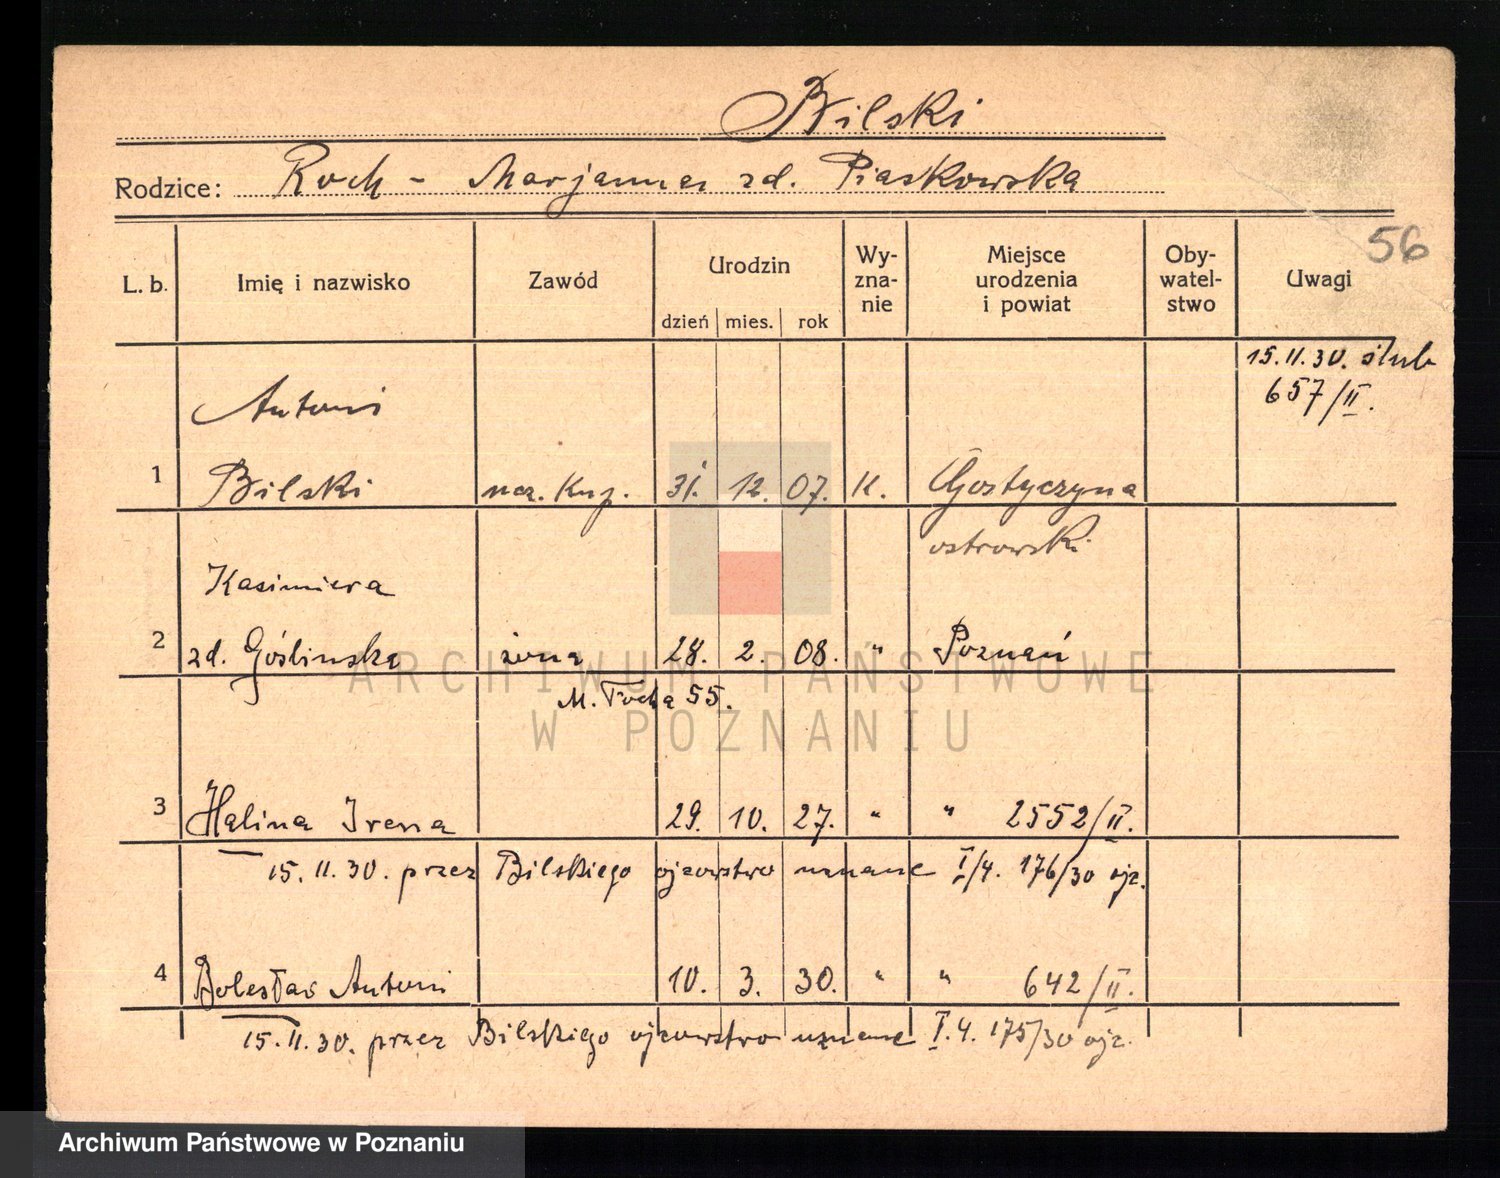 Bilski
Rodzice: Roch - Marjanna zd. Piaskowska
56
L. b. Imię i nazwisko Zawód Urodzin Wy-zna-nie Miejsce urodzenia i powiat Oby-watel-stwo Uwagi
dzień mies. rok
15.11.30. ślub
657/II.
Antoni
1 Bilski 31. 12. 07. K. Gostyczyna
ostrowski
Kazimiera
2 zd. Goślinska żona 28. 2. 08. " Poznań
M. Focha 55.
3 Halina Irena 29. 10. 27. " " 2552/II.
15.11.30. przez Bilskiego ojcowstwo uznane I/4. 176/30 ojc.
4 Bolesław Antoni 10. 3. 30. " " 642/II.
15.11.30. przez Bilskiego ojcowstwo uznane I.4. 175/30 ojc.
ARCHIWUM PAŃSTWOWE
W POZNANIU
Archiwum Państwowe w Poznaniu